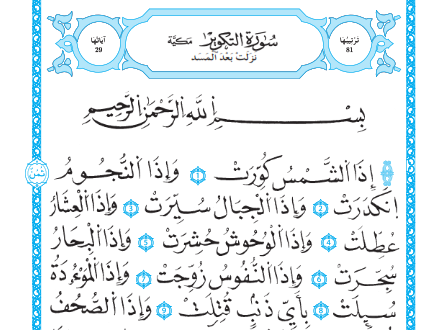 ترتيبها
81
سُورَةُ التَّكْوِيرِ مَكِّيَّة
نَزَلَتْ بَعْدَ الْمَسَد
آياتها
29
بِسْمِ اللَّهِ الرَّحْمَٰنِ الرَّحِيمِ
إِذَا الشَّمْسُ كُوِّرَتْ 1 وَإِذَا النُّجُومُ
انكَدَرَتْ 2 وَإِذَا الْجِبَالُ سُيِّرَتْ 3 وَإِذَا الْعِشَارُ
عُطِّلَتْ 4 وَإِذَا الْوُحُوشُ حُشِرَتْ 5 وَإِذَا الْبِحَارُ
سُجِّرَتْ 6 وَإِذَا النُّفُوسُ زُوِّجَتْ 7 وَإِذَا الْمَوْءُودَةُ
سُئِلَتْ 8 بِأَيِّ ذَنْبٍ قُتِلَتْ 9 وَإِذَا الصُّحُفُ